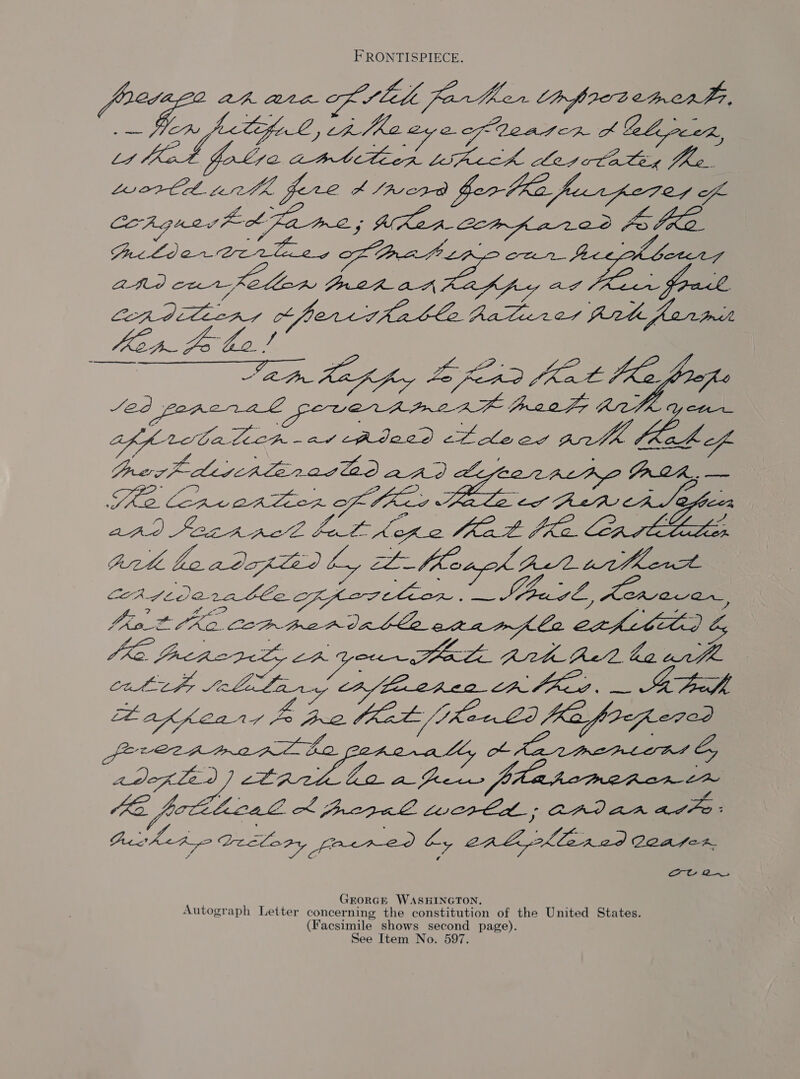 FRONTISPIECE.
presage at are of still farther improvements.
— How pitiful, in the eye of reason & religion,
is that false ambition which desolates the
world with fire & sword for the purposes of
Conquest & fame; when compared to the
milder virtues of making our neighbours
and our fellow men as happy as their frail
conditions & perishable natures will permit
them to be!
I am happy to find that the propo
sed general government meets with your
approbation - as indeed it does with that of
most disinterested and discerning men. —
The Convention of this State is now in Session
and I cannot but hope that the Constitution
will be adopted by it - though not without
considerable opposition. — I trust, however,
that the commendable example exhibited by
the minority in your State will not be with
out its salutary influence in this. — In truth
it appears to me that (should the proposed
government be generally & harmoniously
adopted) it will be a new phenomenon in
the political & moral world; and an asto:
nishing victory gained by enlightened reason
over
GEORGE WASHINGTON.
Autograph Letter concerning the constitution of the United States.
(Facsimile shows second page).
See Item No. 597.